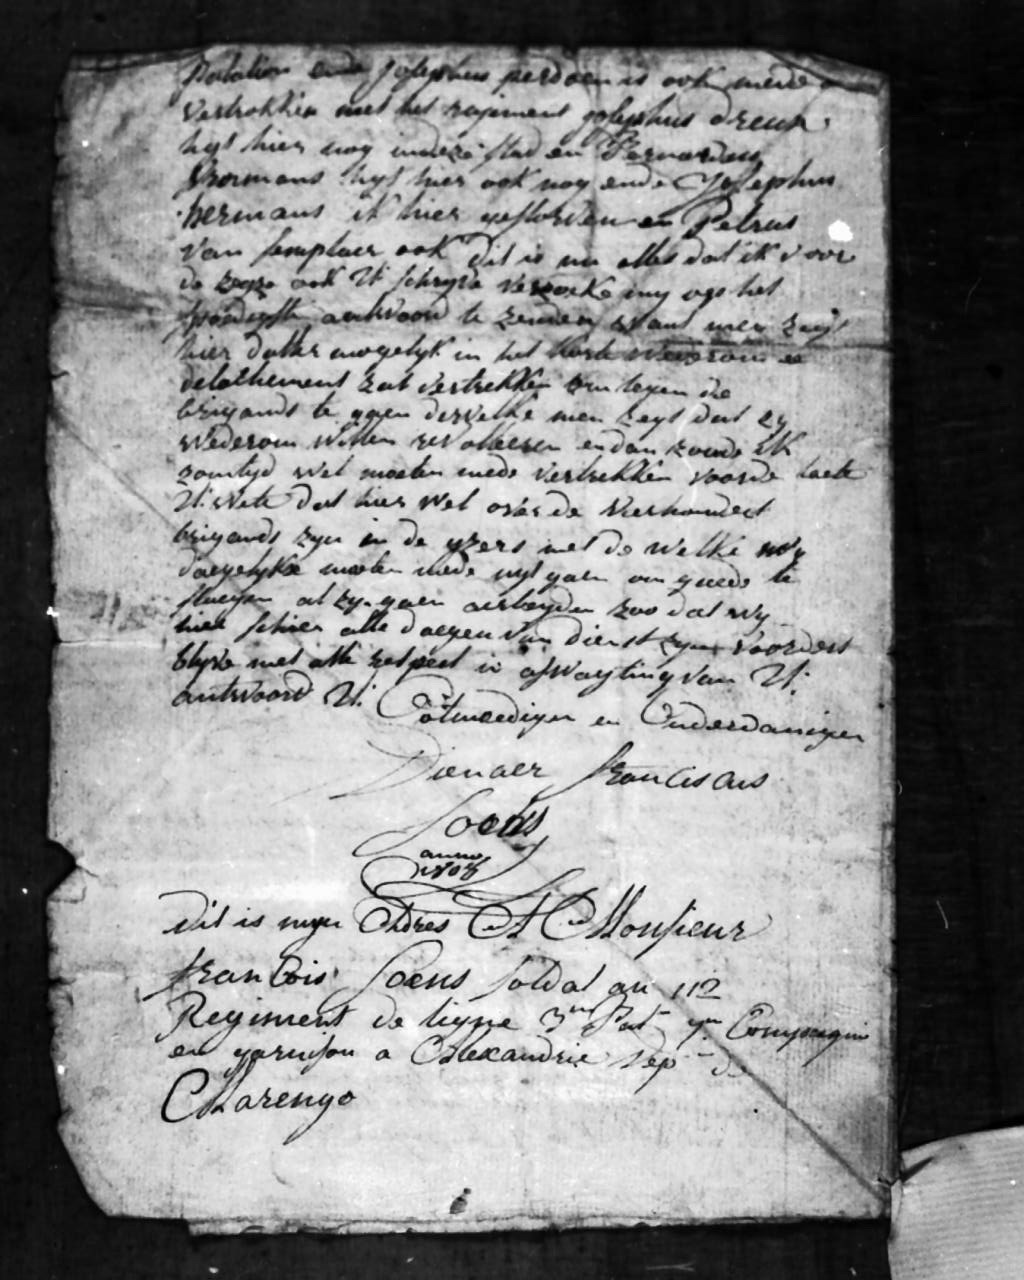 Batalion ende Josephus perdoen is ook mede
vertrokken met het regiment josephus dreux
hyt hier nog indeze stad en Bernardus
hormans hyt hier ook nog ende Josephus
hermans it hier gestorven en Petrus
van semplaer ook dit is nu alles dat ik voor
de zegge ook U: schryve verzoeke my ogs het
spoedigste antwoord te zenden want men zeyt
hier dalter mogelyk in het korte wederom en
detachement zat vertrekken om tegen die
brigands te gaen dewelke men zeyt dat zy
wederom willen revolteeren en dan zoude ik
zomtyd wel moeten mede vertrekken voorde laete
U: wete dat hier wel over de vierhondert
brigands zyn in de yzers met de welke wy
daegelykx moeten mede uyt gaen om goede te
slaegen at zy gaen arbeyden zoo dat wy
hier schier alle daegen van dienst zyn voordert
blyve met alle respect in afwagting van U:
antwoord U: Ootmoedigen en Onderdanigen
Dienaer franciscus
Soens
anno
1808
dit is myn Adres A Monsieur
francois Soens soldat au 112
Regiment de ligne 3me Bat Compagnie
en garnison a Alexandrie dep de
Marengo